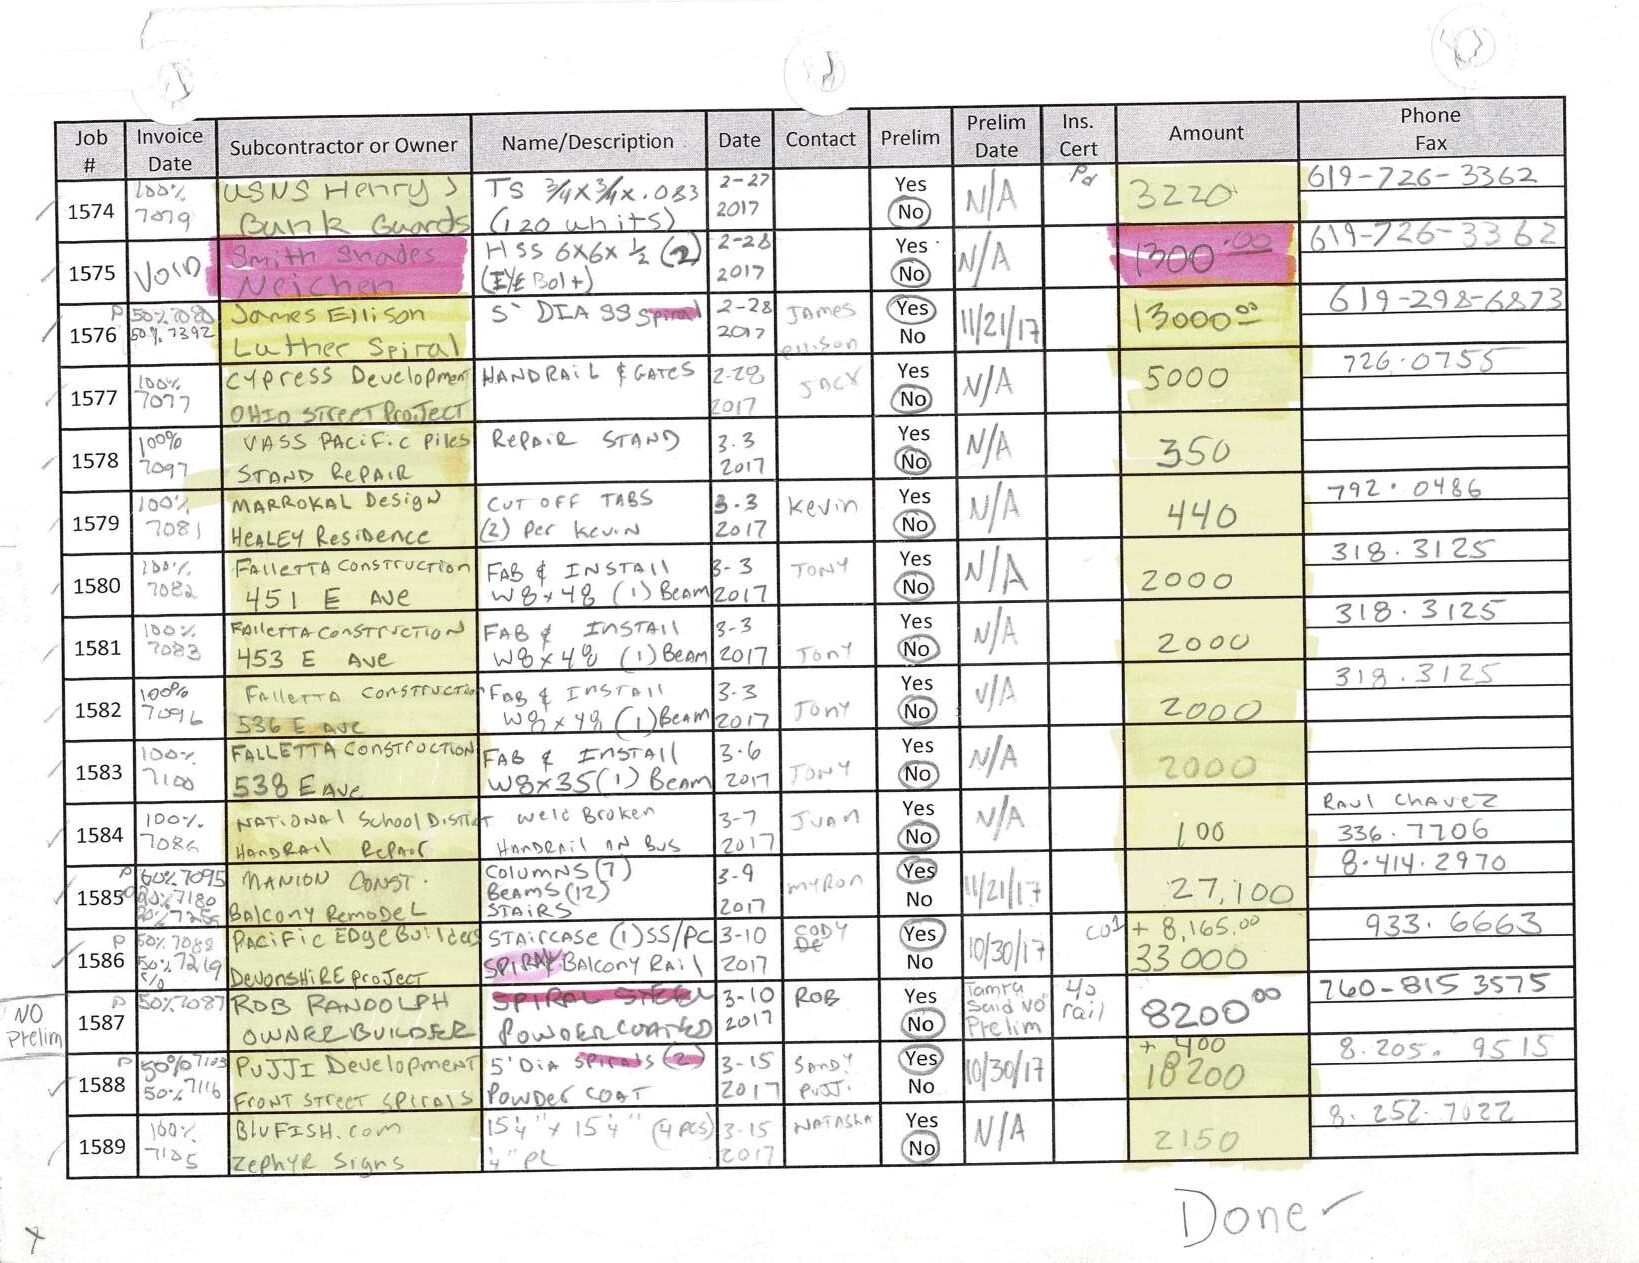 Job # Invoice Date Subcontractor or Owner Name/Description Date Contact Prelim Prelim Date Ins. Cert Amount Phone Fax
1574 100% 7079 USNS Henry J Bunk Guards TS 3/4 x 3/4 x .083 (120 units) 2-27 2017 Yes No N/A Pd 3220 619-726-3362
1575 VOID Smith Shades Neichen HSS 6x6x 1/2 (2) (EYE Bolt) 2-28 2017 Yes No N/A 1300.00 619-726-3362
P 1576 50% 7080 50% 7392 James Ellison Luther Spiral 5' DIA SS Spiral 2-28 2017 JAMES ellison Yes No 11/21/17 13000.00 619-298-6873
1577 100% 7077 Cypress Development OHIO STREET Project HANDRAIL & GATES 2-28 2017 JACK Yes No N/A 5000 726.0755
1578 100% 7097 VASS PACIFIC Piles STAND REPAIR REPAIR STAND 3.3 2017 Yes No N/A 350
1579 100% 7081 MARROKAL Design HEALEY Residence CUT OFF TABS (2) Per Kevin 3.3 2017 Kevin Yes No N/A 440 792.0486
1580 100% 7082 FALLETTA CONSTRUCTION 451 E AVE FAB & INSTALL W8x48 (1) BEAM 3-3 2017 TONY Yes No N/A 2000 318.3125
1581 100% 7083 FALLETTA CONSTRUCTION 453 E AVE FAB & INSTALL W8x48 (1) BEAM 3-3 2017 TONY Yes No N/A 2000 318.3125
1582 100% 7096 FALLETTA CONSTRUCTION 536 E AVE FAB & INSTALL W8x48 (1) BEAM 3-3 2017 TONY Yes No N/A 2000 318.3125
1583 100% 7100 FALLETTA CONSTRUCTION 538 E AVE FAB & INSTALL W8x35 (1) BEAM 3.6 2017 TONY Yes No N/A 2000
1584 100% 7086 NATIONAL School District HANDRAIL REPAIR Weld Broken HANDRAIL ON BUS 3-7 2017 JUAN Yes No N/A 100 RAUL CHAVEZ 336.7706
P 1585 60% 7095 20% 7180 20% 7255 MANION CONST. BALCONY REMODEL COLUMNS (7) BEAMS (12) STAIRS 3-9 2017 MYRON Yes No 11/21/17 27,100 8.414.2970
P 1586 50% 7088 50% 7219 PACIFIC EDGE Builders DEVONSHIRE PROJECT STAIRCASE (1) SS/PC SPIRAL & BALCONY RAIL 3-10 2017 CODY DE Yes No 10/30/17 CO1 + 8,165.00 33000 933.6663
NO Prelim P 1587 50% 7087 ROB RANDOLPH OWNER BUILDER SPIRAL STEEL POWDER COATED 3-10 2017 ROB Yes No Tamra Send NO Prelim rail 8200.00 760-815 3575
P 1588 50% 7103 50% 7116 PUJJI Development FRONT STREET SPIRALS 5' DIA SPIRALS (2) POWDER COAT 3-15 2017 SANDY PUJJI Yes No 10/30/17 + 400 18200 8.205.9515
1589 100% 7105 BLUFISH.com ZEPHYR Signs 15 1/4" x 15 1/4" (4 PCS) 1/4" PL 3-15 2017 NATASHA Yes No N/A 2150 8.252.7022
Done